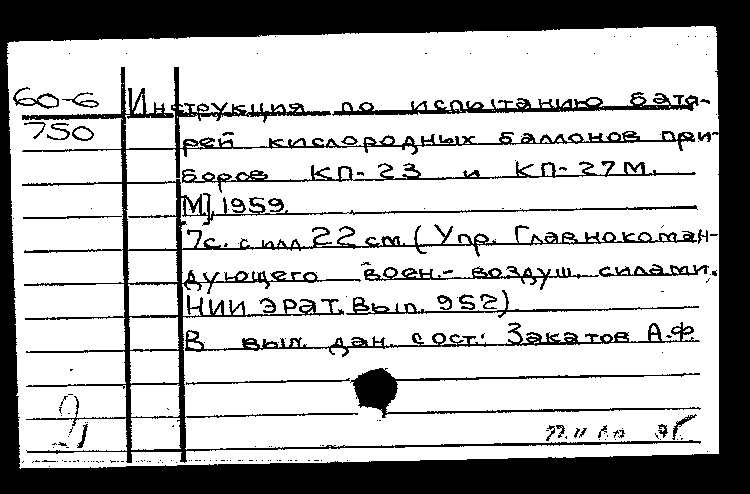 60-6
750
Инструкция по испытанию бата-
рей кислородных баллонов при-
боров КП-23 и КП-27М.
М], 1959.
7с. с илл. 22 см. (Упр. Главнокоман-
дующего воен.-воздуш. силами.
НИИ ЭРАТ. Вып. 952)
В вып. дан. сост.: Закатов А.Ф.